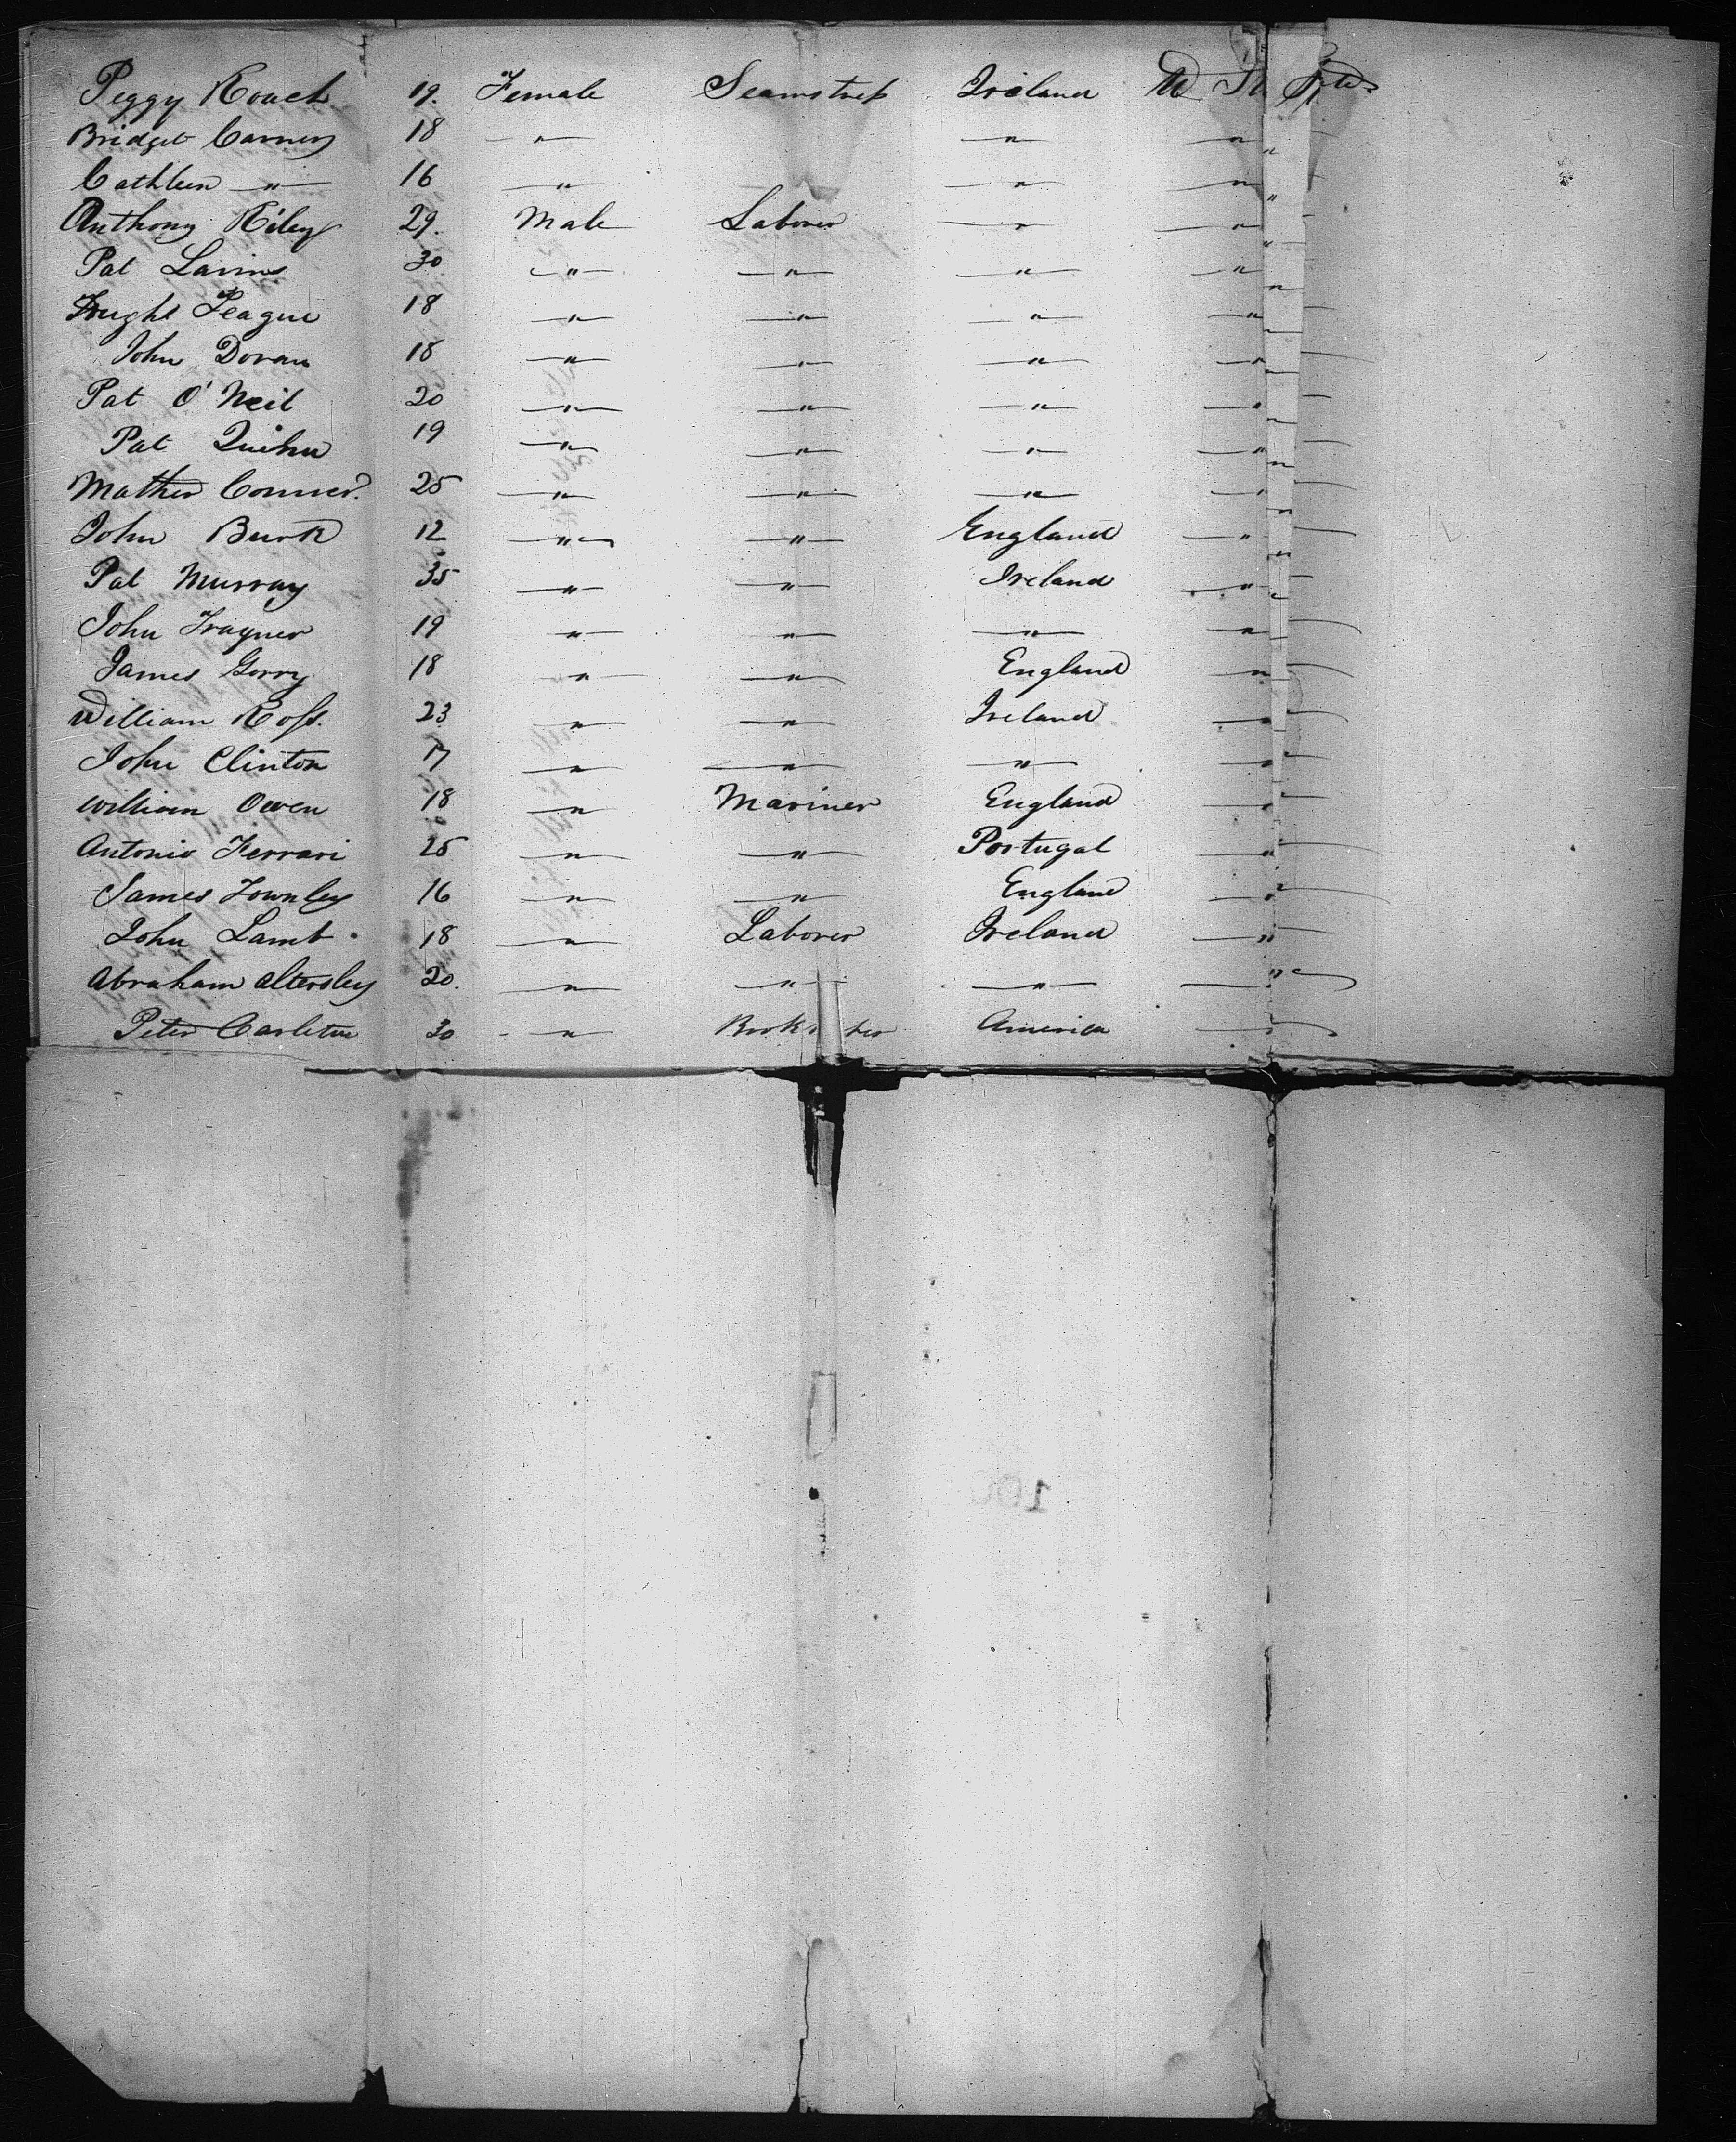 Peggy Roach 19. Female Seamstress Ireland U St
Bridget Carney 18 " " "
Cathleen " 16 " " "
Anthony Riley 29. Male Laborer " "
Pat Lavin 30 " " " "
Hught Teague 18 " " " "
John Doran 18 " " " "
Pat O'Neil 20 " " " "
Pat Quihn 19 " " " "
Mathew Conner. 25 " " " "
John Burk 12 " " England "
Pat Murray 35 " " Ireland "
John Traynor 19 " " " "
James Gorry 18 " " England "
William Ross. 23 " " Ireland "
John Clinton 17 " " " "
William Owen 18 " Mariner England "
Antonio Ferrari 25 " " Portugal "
James Townley 16 " " England "
John Lamb 18 " Laborer Ireland "
Abraham Altersley 20. " " " "
Peter Carleton 30 " America
100